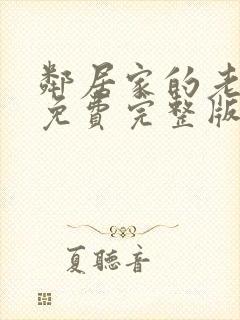 鄰居家的老
免費完整版
夏聽音